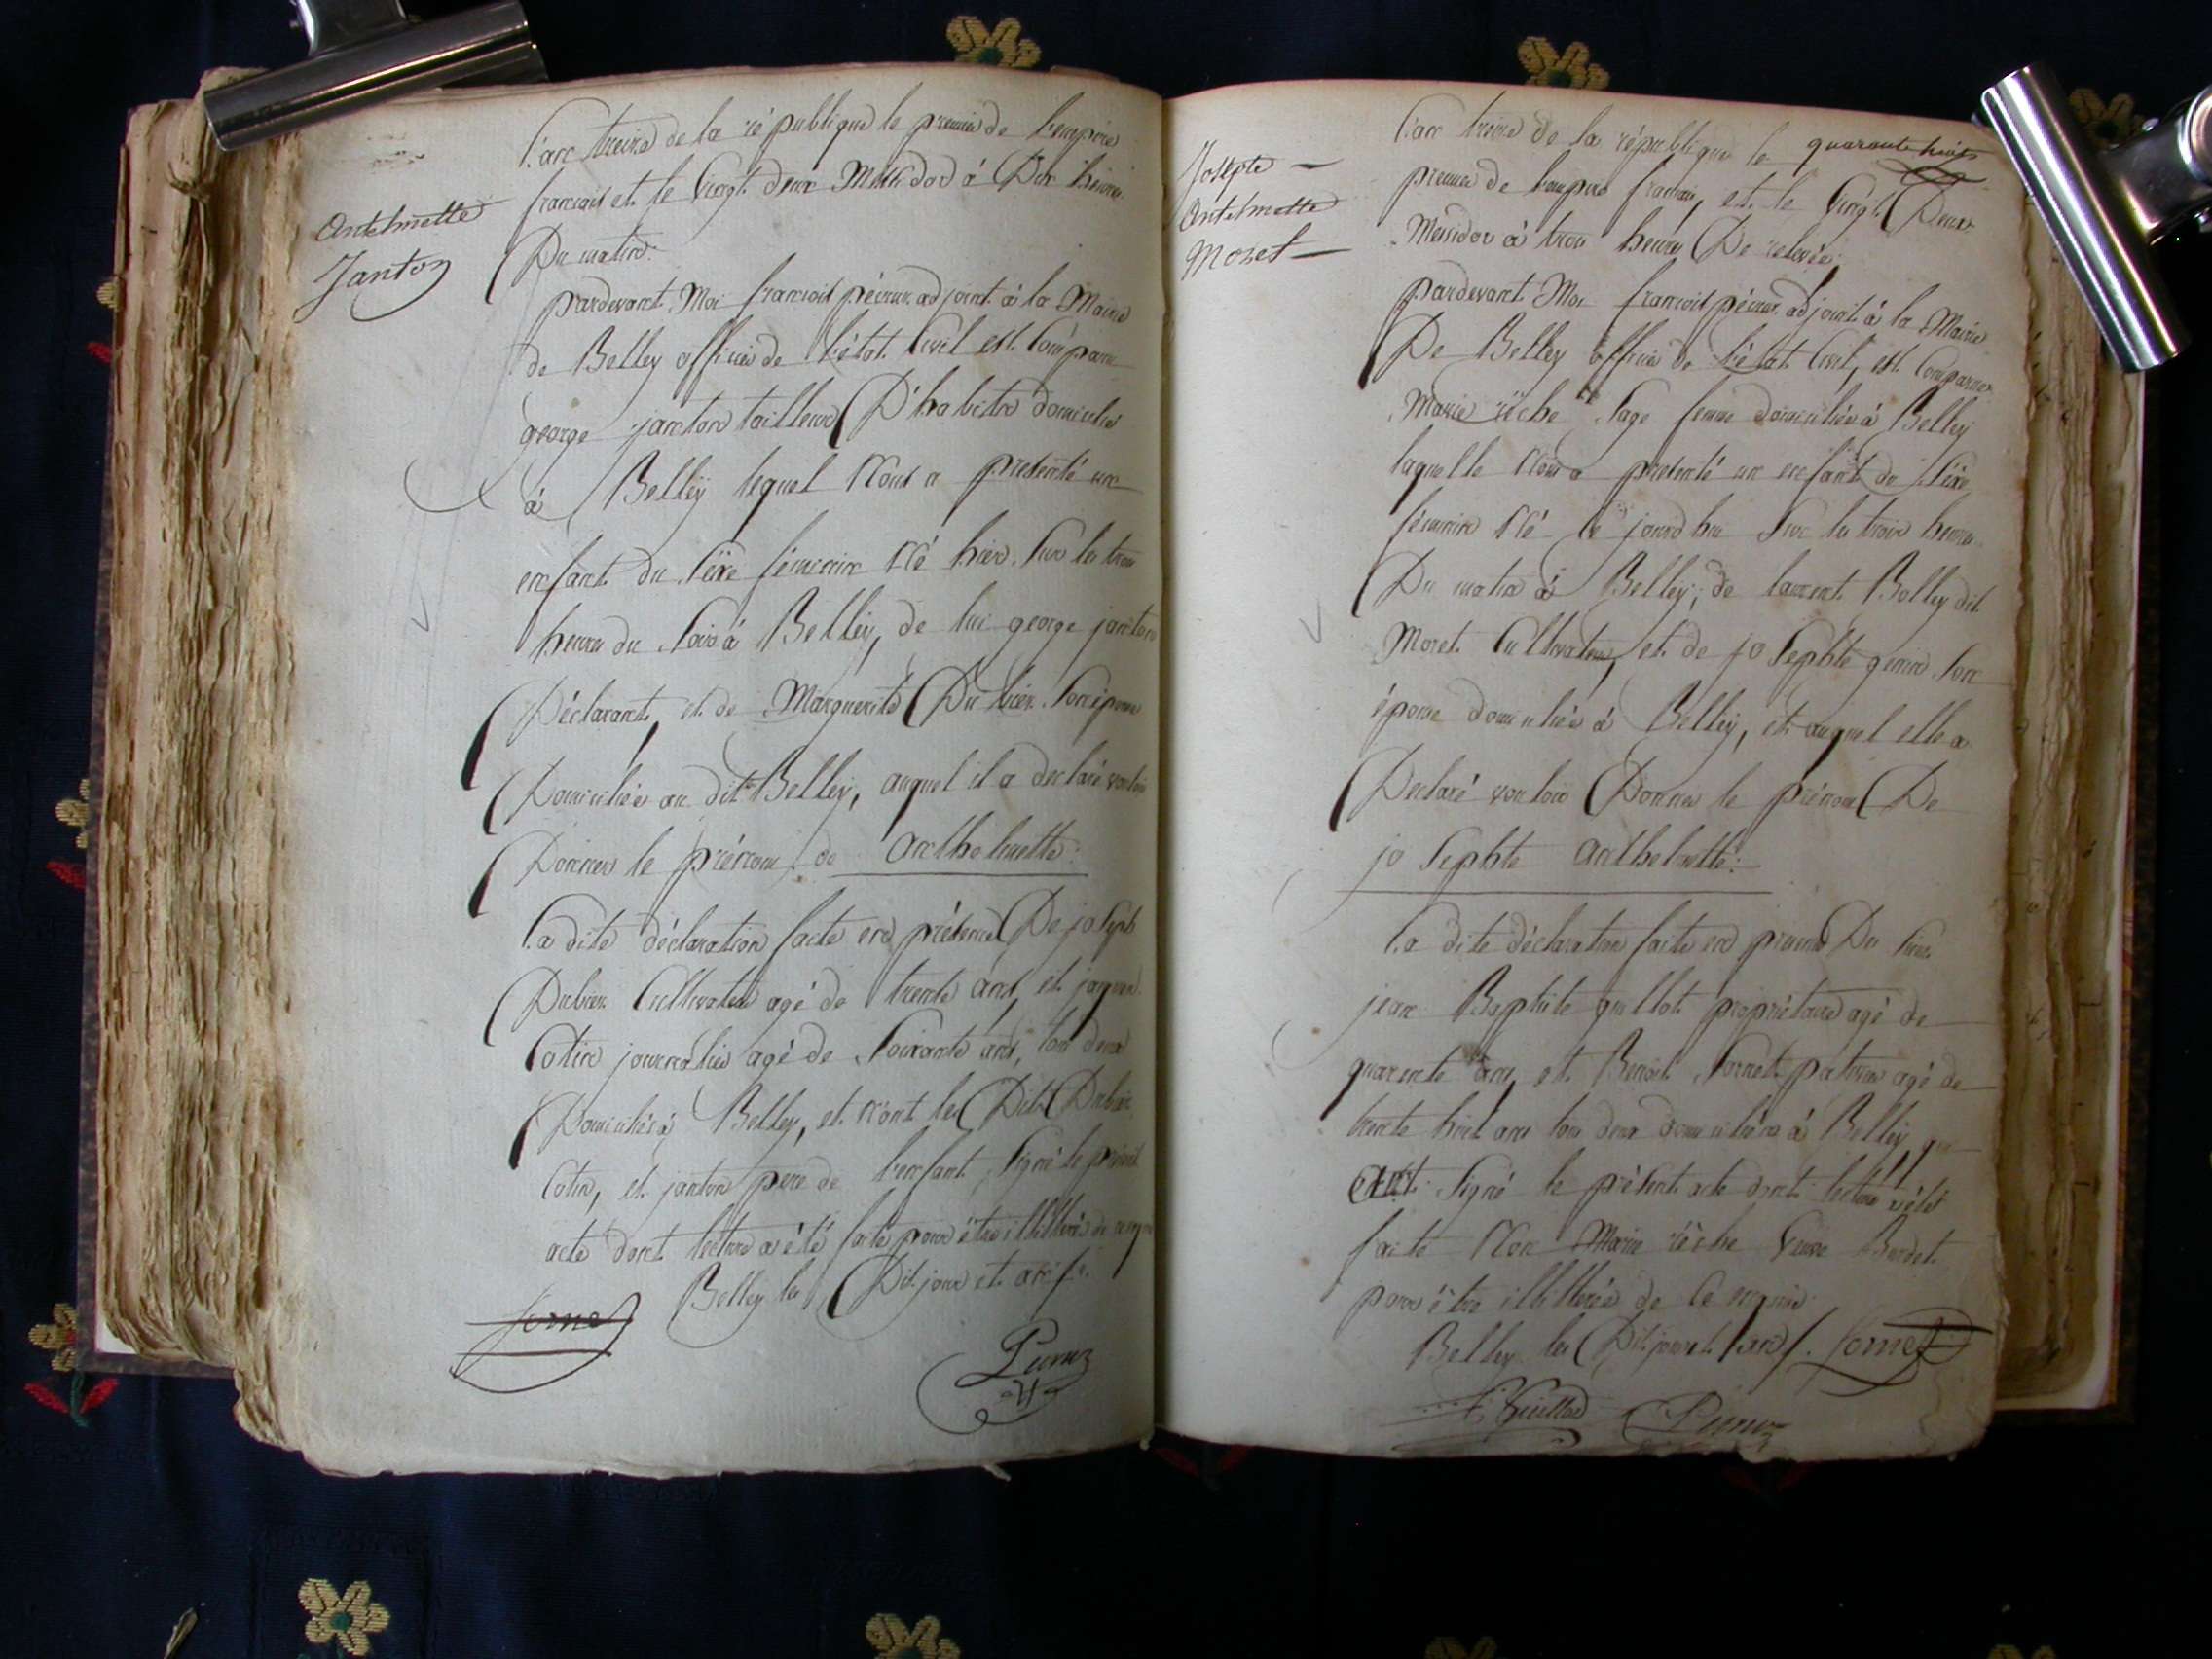 Antelmette
Janton
l'an treize de la république le premier de l'empire
francais et le vingt deux Messidor à Dix heures
Du matin.
pardevant Moi francois péeiux adjoint à la Mairie
de Belley officier de l'état Civil est Comparu
george janton tailleur D'habits domicilié
à Belley lequel Nous a presenté un
enfant du séxe féminin Né hier sur les trois
heures du soir à Belley, de lui george janton
Déclarant, et de Marguerite Dubier son épouse
Domiciliée au dit Belley, auquel il a declaré vouloir
Donner le prénom de anthelmette.
la dite déclaration faite en présence De joseph
Dubier Cultivateur agé de trente ans, et jaques
Cotin journalier agé de soixante ans, tous deux
Domiciliés à Belley, et n'ont les Dits Dubier
Cotin, et janton pere de l'enfant signé le présent
acte dont lecture a été faite pour être illitérés de ce requis
Belley les Dit jour et an /.
Sornet
quarante huit
Josepte
Antelmette
Moret
l'an treize de la république le
premier de l'empire francais, et le vingt Deux
Messidor à trois heures De relevée.
pardevant Moi francois péeiux adjoint à la Mairie
De Belley officier de l'état Civil, est Comparue
Marie rêche sage femme domiciliée à Belley
laquelle Nous a presenté un enfant du séxe
féminin Né ce jourd'hui sur les trois heures
Du matin à Belley, de laurent Bolley dit
Moret Cultivateur, et de josephte genin son
épouse domiciliés à Belley, et auquel elle a
Declaré vouloir Donner le prénom De
josephte anthelmette.
la dite déclaration faite en presence Du sieur
jean Baptiste guillot propriétaire agé de
quarente ans, et Benoit Sornet patissier agé de
trente huit ans tous deux domiciliés à Belley qui
ont signé le présent acte dont lecture a été
faite Non Marie rêche veuve Burdet
pour être illittérée de ce requise.
Belley les Dit jour et an /. Sornet
Guillot